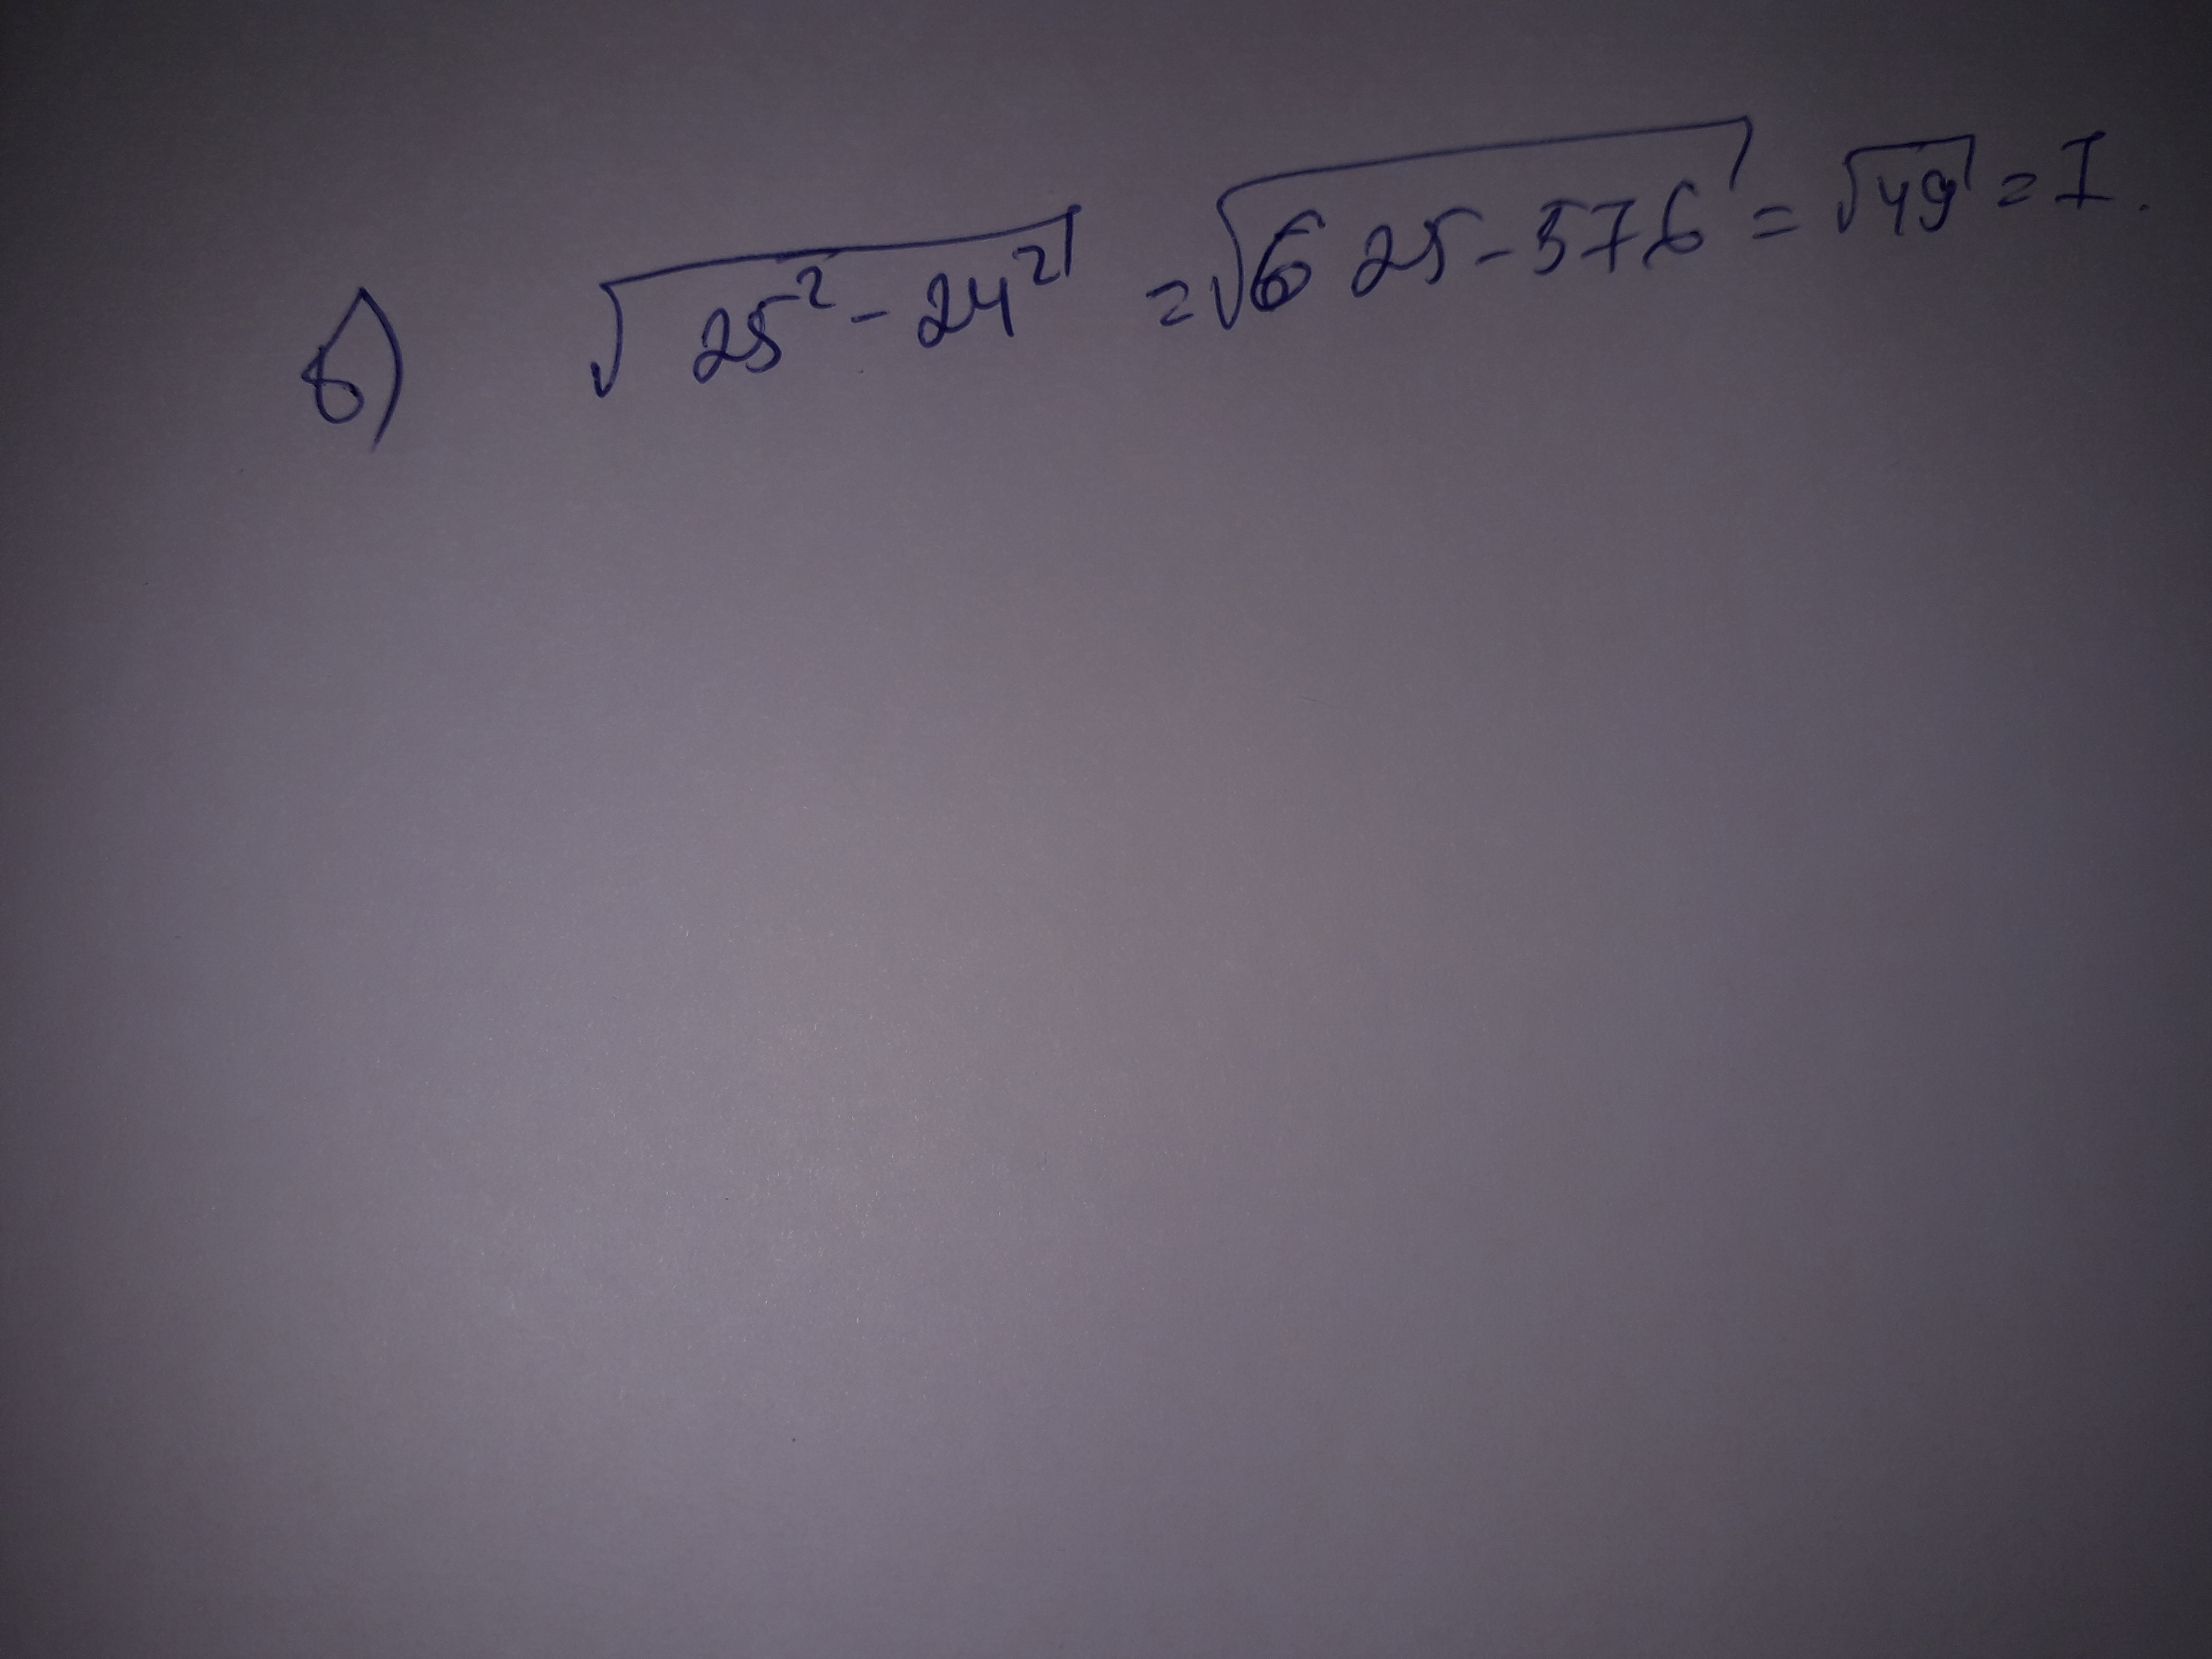 б) √(25² - 24²) = √(625 - 576) = √49 = 7.